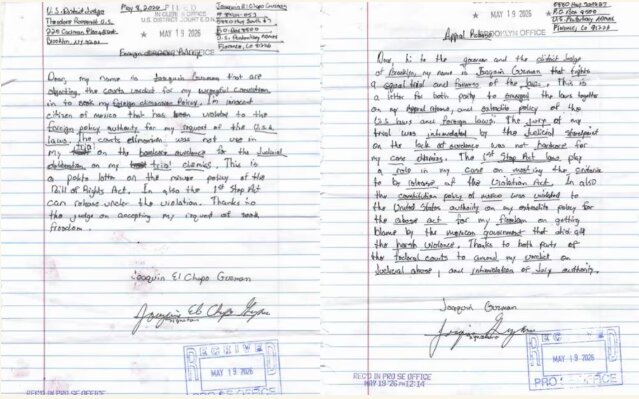 U.S. District Judge
Theodore Roosevelt U.S.
225 Cadman Plaza East
Brooklyn, NY. 11201
May 8, 2026
FILED
IN CLERK'S OFFICE
U.S. DISTRICT COURT E.D.N.Y.
★ MAY 19 2026 ★
Joaquin El Chapo Guzman
5880 Hwy South 67
P.O. Box 8500
U.S. Penitentiary ADMAX
Florence, CO 81226
Foreign Policy
Dear, my name is Joaquin Guzman that are
objecting the courts verdict for my wrongful conviction
in to seek my foreign Policy. I'm innocent
citizen of mexico that has been violated to the
foreign policy authority for my request of the U.S.A.
laws. The courts was not use in
my trial on the hardcore evidence for the Judicial
deliberation on my trial claims. This is
a later on the policy of the
Bill of Rights Act. In also the 1st Step Act
can release under the violation. Thanks to
the Judge on accepting my request of seek
freedom.
Joaquin El Chapo Guzman
Joaquin El Chapo
signature
RECEIVED
MAY 19 2026
PRO SE OFFICE
REC'D IN PRO SE OFFICE
5880 Hwy South 67
P.O. Box 8500
U.S. Penitentiary ADMAX
Florence, CO 81226
★ MAY 19 2026 ★
BROOKLYN OFFICE
Appeal
Dear, hi to the and the district Judge
of Brooklyn, my name is Joaquin Guzman that fights
equal trial and fairness of the law. This is
a letter for both party to the laws together
on my Appeal, and policy of the
U.S laws and foreign laws. The Jury of my
trial was by the Judicial
on the lack of evidence was not hardcore for
my case claims. The 1st Step Act laws play
a role in my case on meeting the criteria
to be release of the Violation Act. In also
the constitution policy of mexico was violated to
the United States authority on my policy for
the abuse act for my freedom on getting
blame by the mexican government that did all
the harsh violence. Thanks to both parts of
the Federal courts to amend my verdict on
Judicial abuse, and intimidation of Jury authority.
Joaquin Guzman
Joaquin
signature
RECEIVED
MAY 19 2026
PRO SE OFFICE
REC'D IN PRO SE OFFICE
MAY 19 '26 PM 12:14